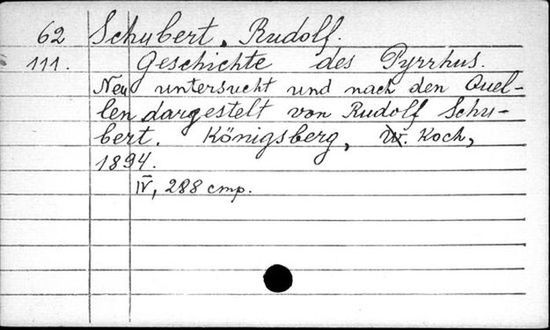 62 Schubert, Rudolf.
111. Geschichte des Pyrrhus.
Neu untersucht und nach den Quel-
len dargestelt von Rudolf Schu-
bert. Königsberg, W. Koch,
1894.
IV, 288 стр.